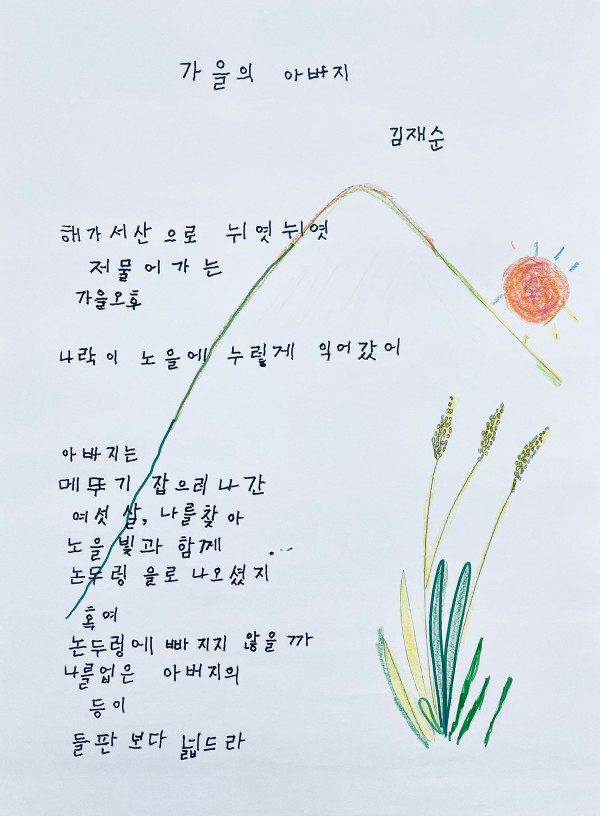 가을의 아버지
김재순
해가 서산 으로 뉘엿뉘엿
저물어 가는
가을오후
나락이 노을에 누렇게 익어갔어
아버지는
메뚜기 잡으러 나간
여섯 살, 나를 찾아
노을 빛과 함께 ...
논두렁 을로 나오셨지
혹여
논두렁에 빠지지 않을까
나를업은 아버지의
등이
들판 보다 넓드라